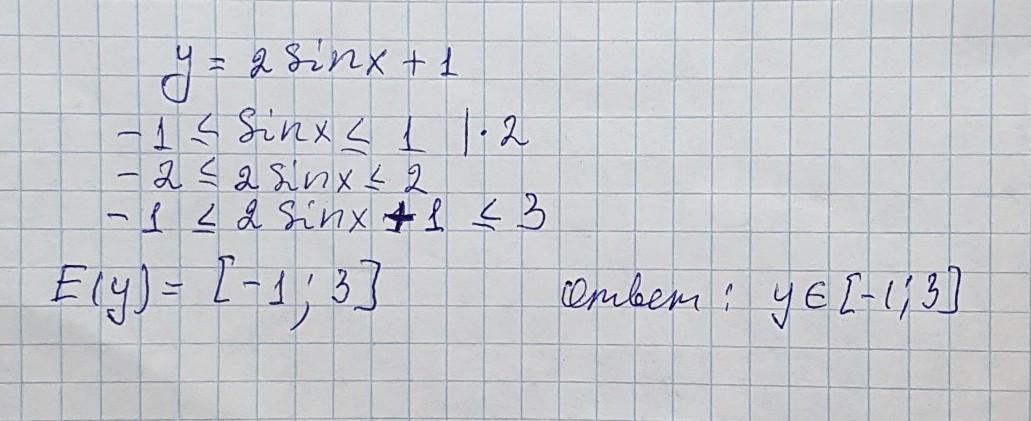 y = 2 sinx + 1
-1 ≤ sinx ≤ 1 | · 2
-2 ≤ 2 sinx ≤ 2
-1 ≤ 2 sinx + 1 ≤ 3
E(y) = [-1; 3] ответ: y ∈ [-1; 3]